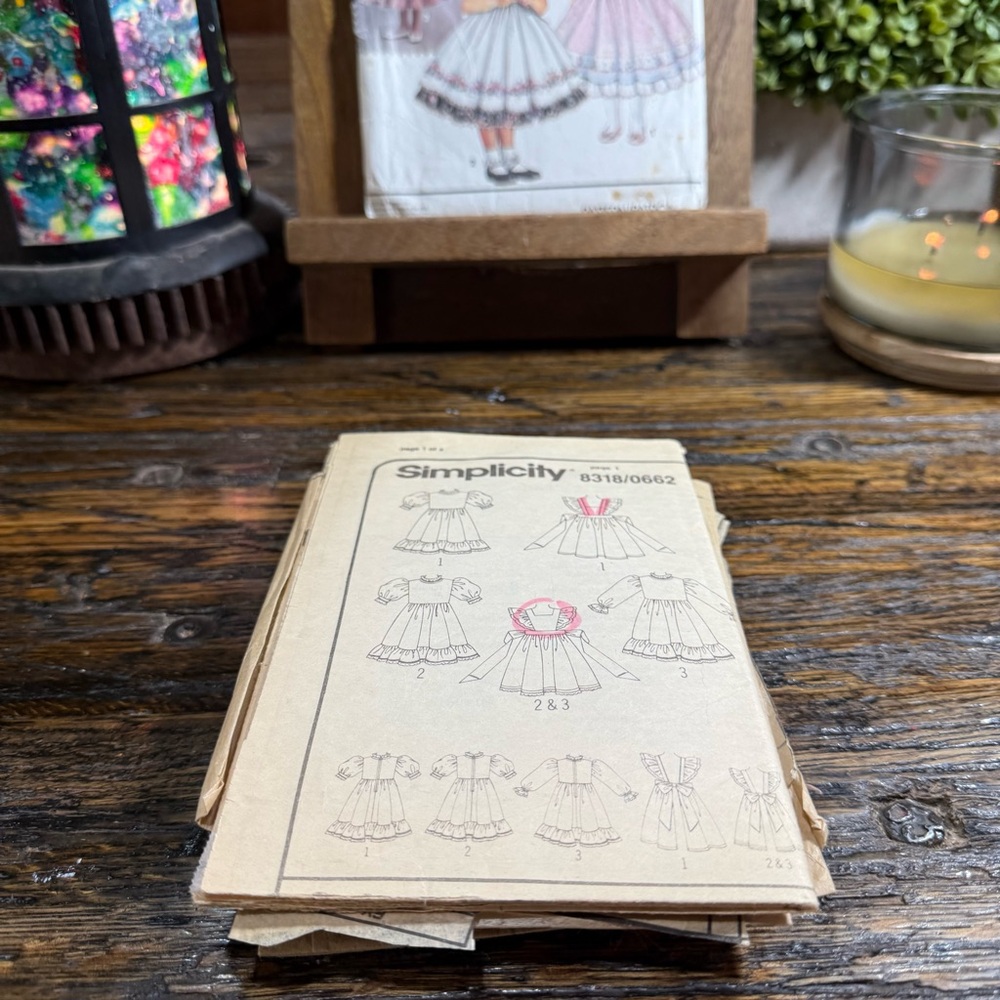 page 1 of 4
Simplicity
page 1
8318/0662
1
1
2
2 & 3
3
1
2
3
1
2&3